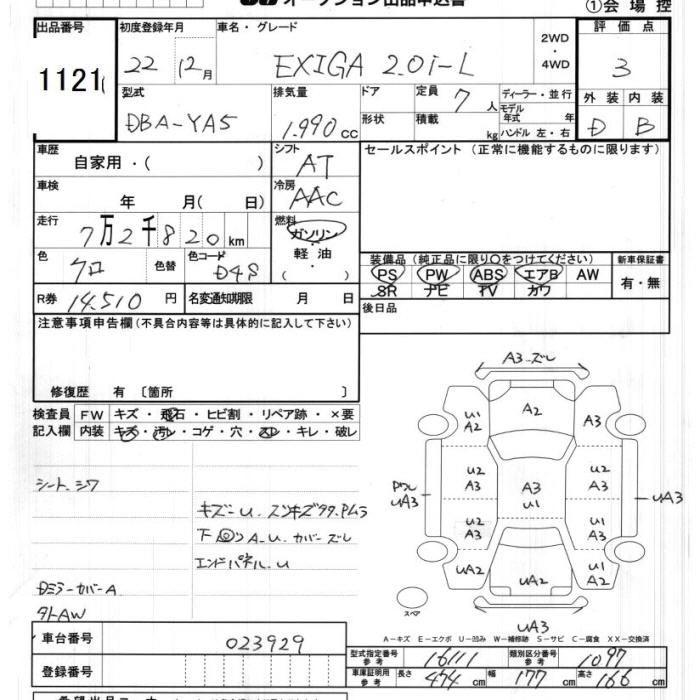 オークション出品申込書
①会場控
出品番号 初度登録年月 車名・グレード 評価点
1121
22 12月 EXIGA 2.0i-L 2WD・4WD 3
型式 排気量 ドア 定員 7人 ディーラー・並行 外装 内装
形状 積載 kg モデル年式 年
DBA-YA5 1.990cc ハンドル 左・右 D B
車歴 自家用・( ) シフト AT セールスポイント(正常に機能するものに限ります)
車検 年 月( 日) 冷房 AAC
走行 7万2千820km 燃料 ガソリン・軽油・( )
色 クロ 色替 色コード D4S 装備品(純正品に限り○をつけてください) 新車保証書
PS PW ABS エアB AW 有・無
SR ナビ TV カワ
R券 14.510円 名変通知期限 月 日 後日品
注意事項申告欄(不具合内容等は具体的に記入して下さい)
修復歴 有〔箇所 〕
検査員記入欄 FW キズ・飛石・ヒビ割・リペア跡・×要
内装 キズ・汚レ・コゲ・穴・スレ・キレ・破レ
シート.シワ
キズ-U.
下 A-U.カバーズレ
エンドパネル.U
DミラーカバーA
タトAW
A3-ズレ
U1 A2
A2
A3
U2 A3
A3 U1
U2 A3
UA3
UA3
U2 A3
U1 A3
UA2
UA2
U1 A2
スペア
UA3
A-キズ E-エクボ U-凹み W-補修跡 S-サビ C-腐食 XX-交換済
車台番号 023929
登録番号
型式指定番号参考 16111 類別区分番号参考 1097
車庫証明用参考 長さ 474cm 幅 177cm 高さ 166cm